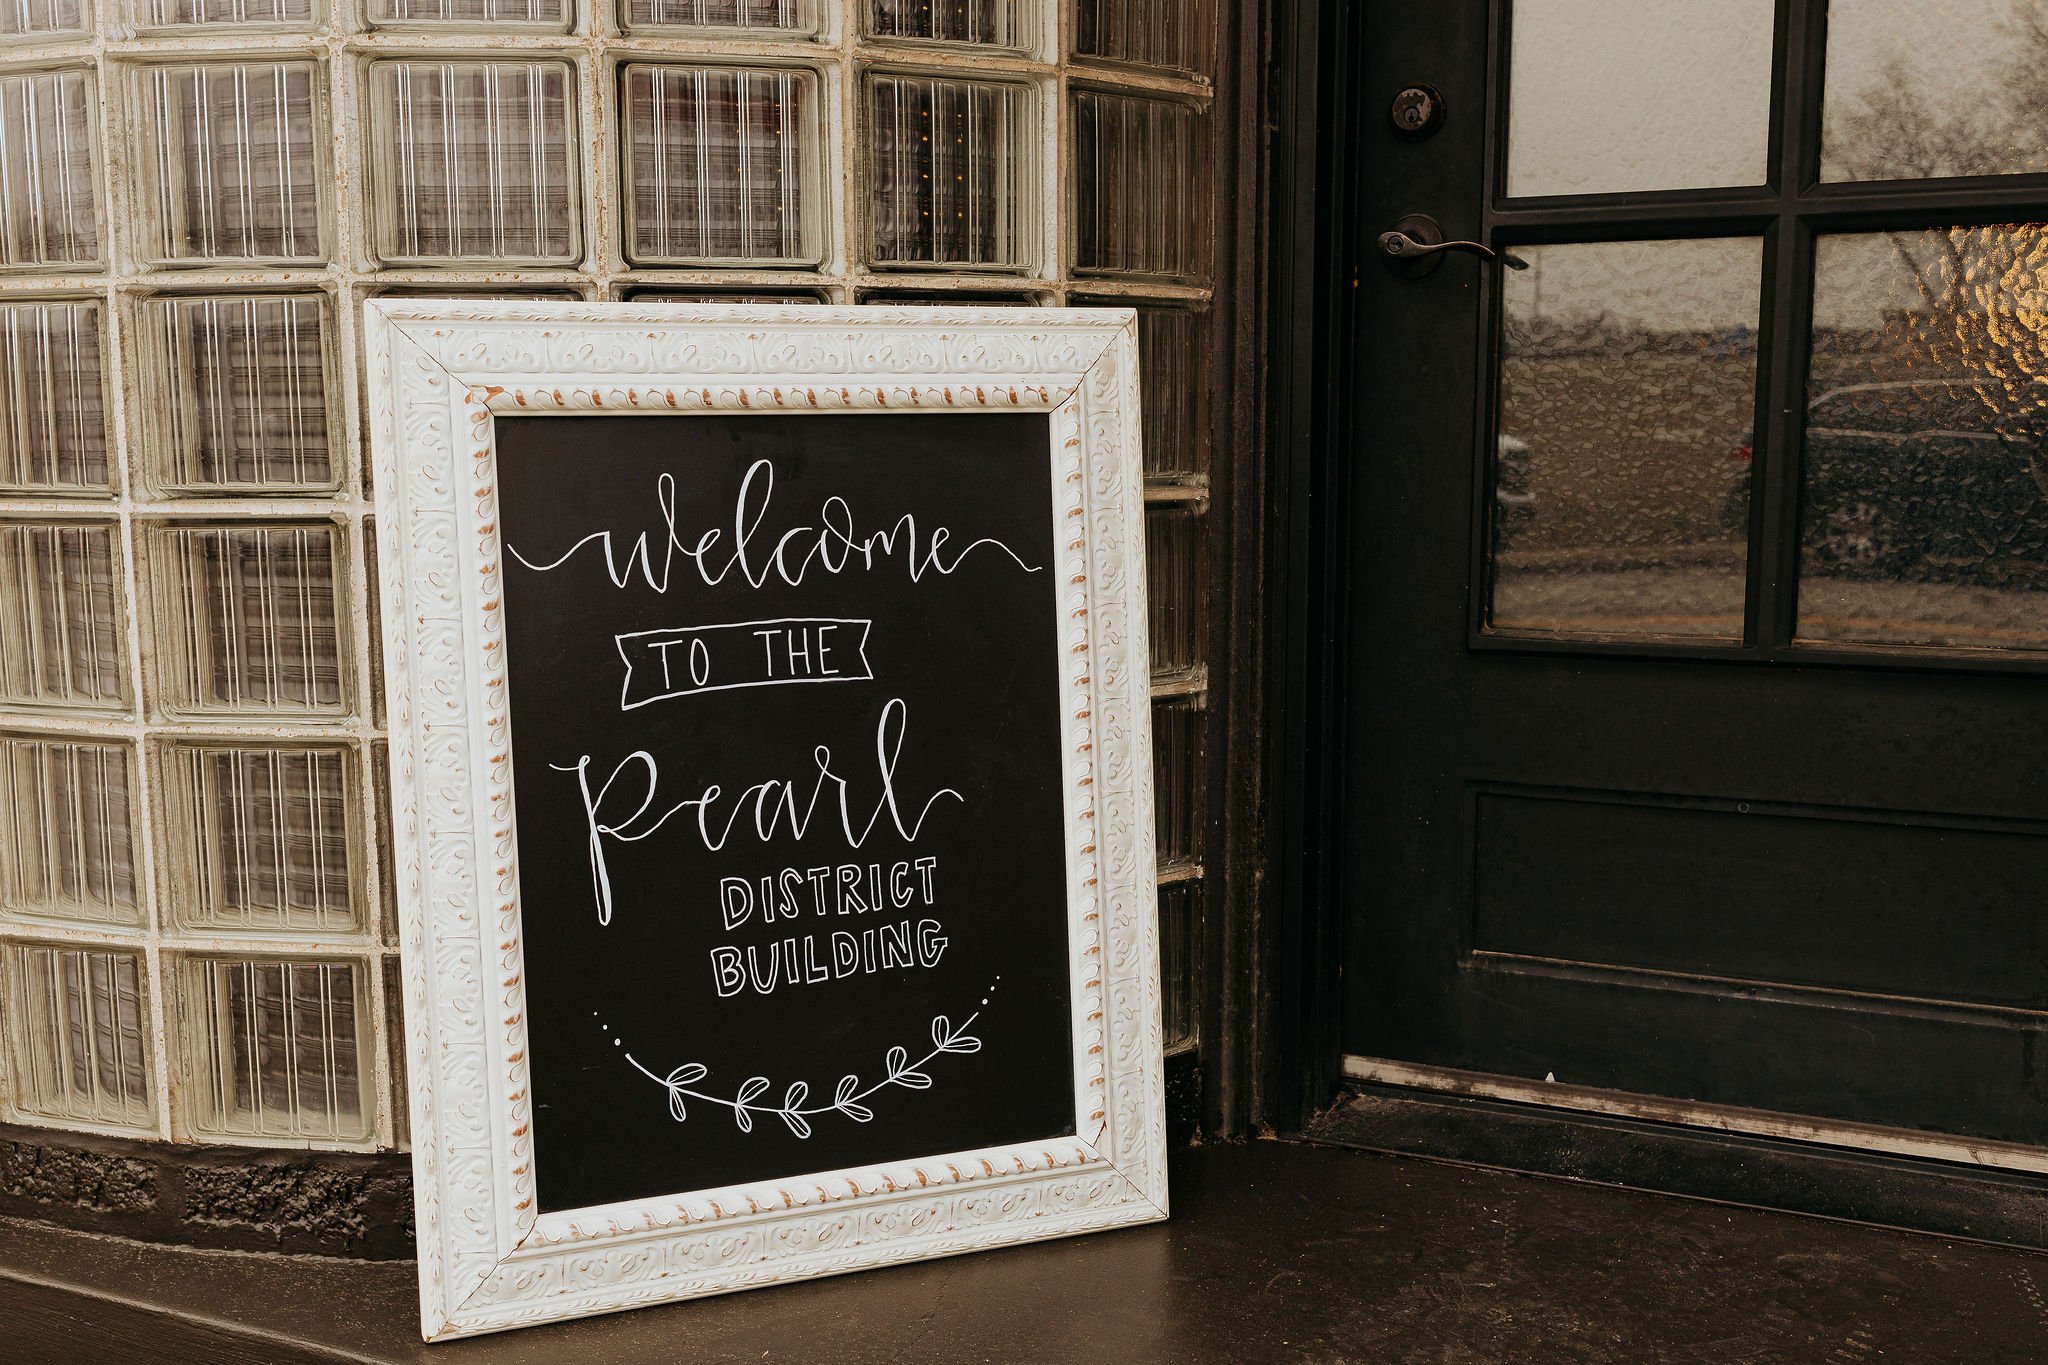 welcome
TO THE
Pearl
DISTRICT
BUILDING